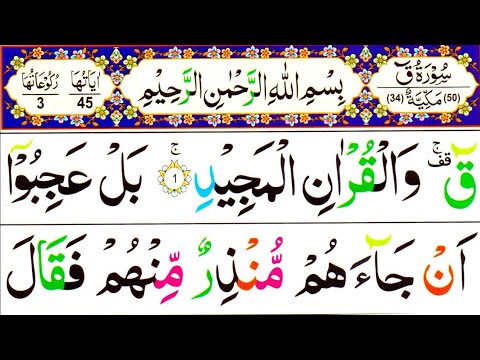 سُوْرَةُ قٓ
(50) مَكِّيَّةٌ (34)
بِسْمِ اللهِ الرَّحْمٰنِ الرَّحِيْمِ
اٰيَاتُهَا 45
رُكُوْعَاتُهَا 3
قٓ ۚ قف وَالْقُرْاٰنِ الْمَجِيْدِ ۚ 1 بَلْ عَجِبُوْۤا
اَنْ جَآءَهُمْ مُّنْذِرٌ مِّنْهُمْ فَقَالَ